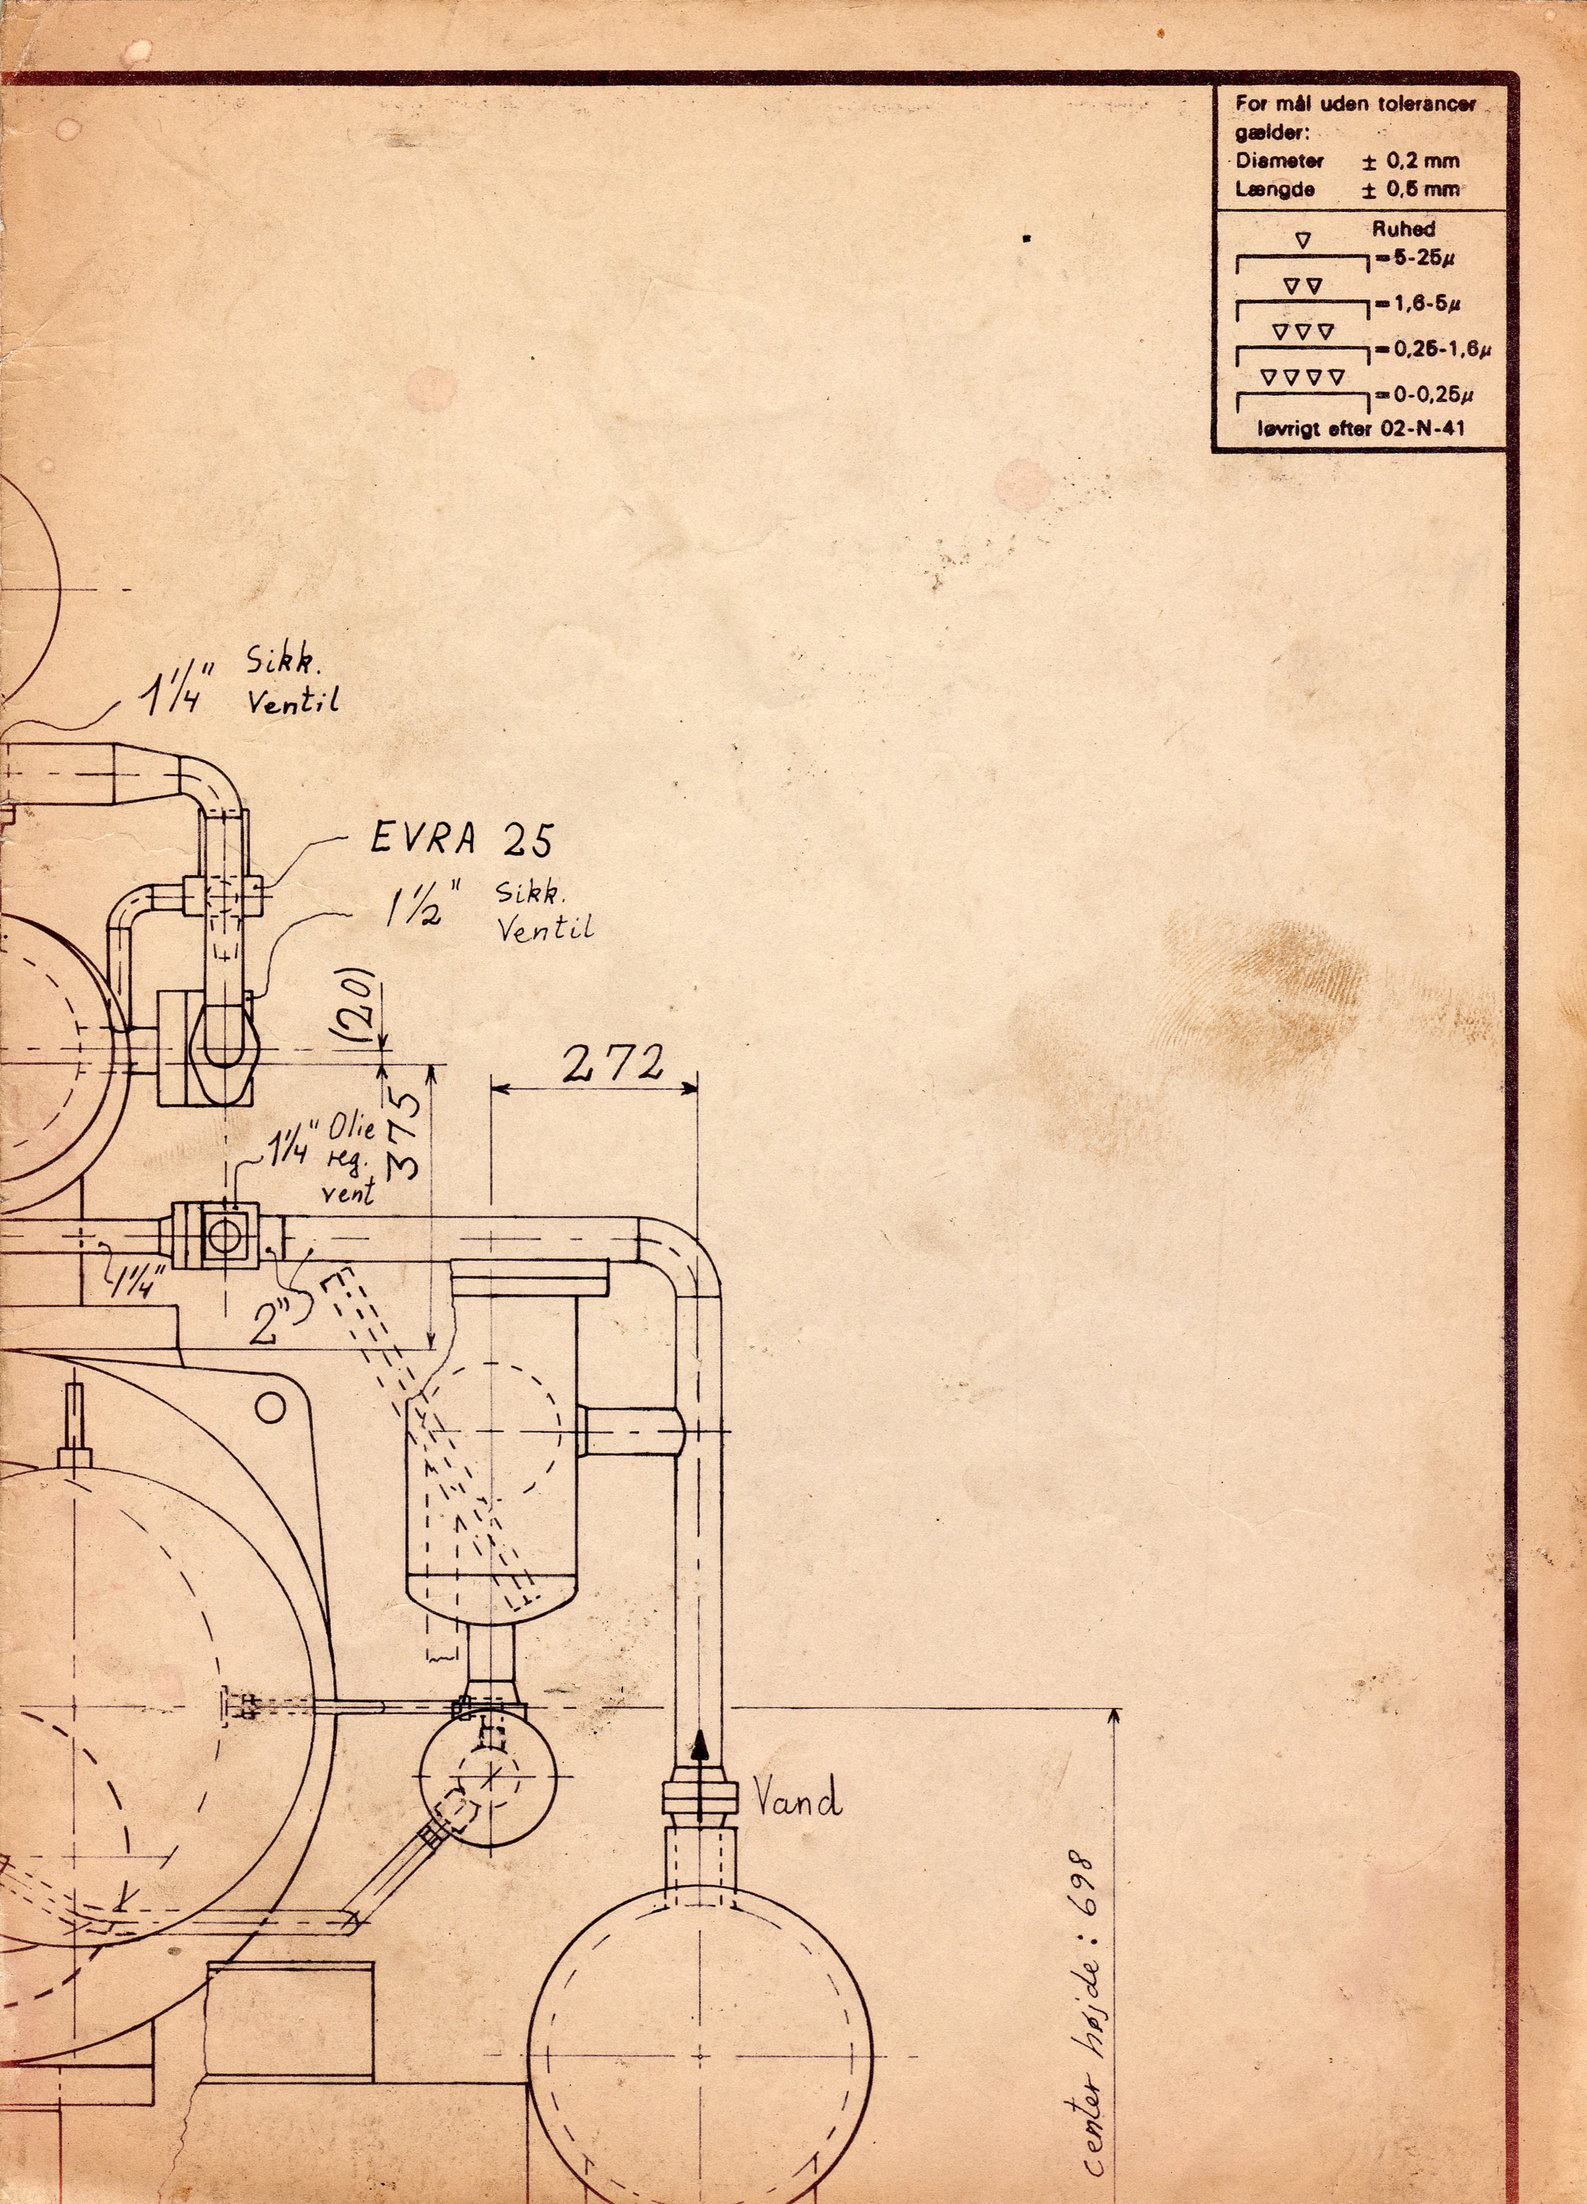 For mål uden tolerancer
gælder:
Diameter ± 0,2 mm
Længde ± 0,5 mm
Ruhed
▽ =5-25µ
▽▽ =1,6-5µ
▽▽▽ =0,25-1,6µ
▽▽▽▽ =0-0,25µ
Iøvrigt efter 02-N-41
1 1/4" Sikk.
Ventil
EVRA 25
1 1/2" Sikk.
Ventil
(20)
272
375
1 1/4" Olie
reg.
vent
1 1/4"
2"
Vand
center højde: 698